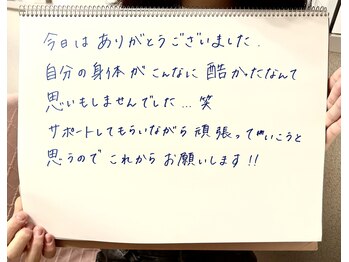 今日は ありがとうございました.
自分の身体が こんなに 酷かったなんて
思いもしませんでした... 笑
サポートしてもらいながら 頑張っていこうと
思うので これから お願いします!!